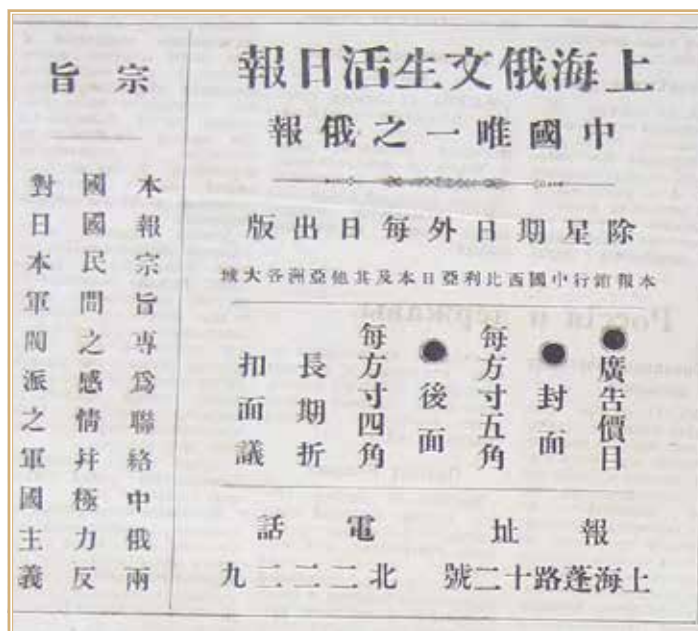 上海俄文生活日報
中國唯一之俄報
除星期日外每日出版
本報行中國西比利亞日本及其他亞洲各大城
●廣告價目
●封面
每方寸五角
●後面
每方寸四角
長期折
扣面議
報址 電話
上海蓬路十二號 北二二二九
宗旨
本報宗旨專爲聯絡中俄兩
國國民間之感情幷極力反
對日本軍閥派之軍國主義